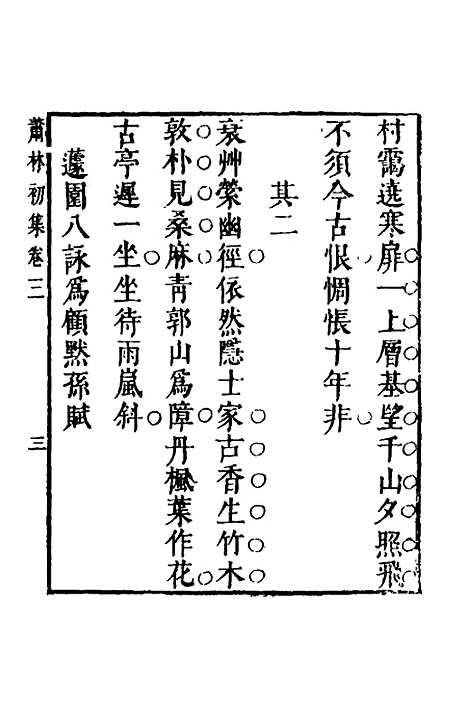 村靄遶寒扉一上層基望千山夕照飛
不須今古恨惆悵十年非
其二
衰艸縈幽徑依然隱士家古香生竹木
敦朴見桑麻青郭山為障丹楓葉作花
古亭遲一坐坐待雨嵐斜
蘧園八詠爲顧黙孫賦
蕭林初集卷三 三